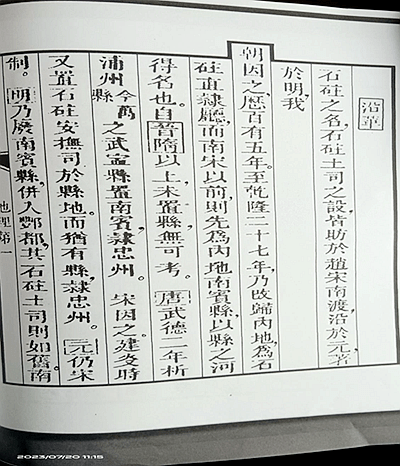 沿革
石砫之名石砫土司之設皆昉於趙宋南渡沿於元著
於明我
朝因之歷百有五年。至乾隆二十七年,乃改歸內地為石
砫直隸廳,而南宋以前,則先為內地南賓縣,以縣之河
得名也。自晉隋以上,未置縣,無可考。唐武德二年析
浦州今萬縣之武寧縣置南賓,隸忠州。宋因之。建炎時
又置石砫安撫司於縣地,而猶有縣,隸忠州。元仍宋
制。明乃廢南賓縣,併入酆都,其石砫土司則如舊。南
地理第一
2023/07/20 11:15